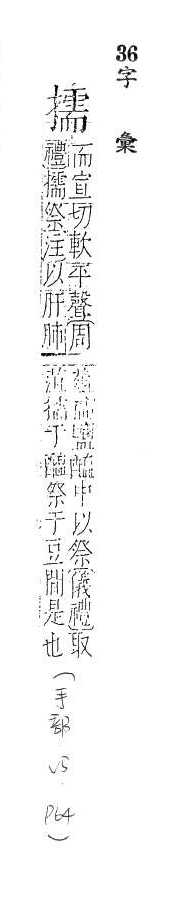 36字彙
擩
而宣切軟平聲周
禮擩祭注以肝肺
菹擩鹽醢中以祭儀禮取
菹擩于醢祭于豆閒是也
(手部 V5. P64)